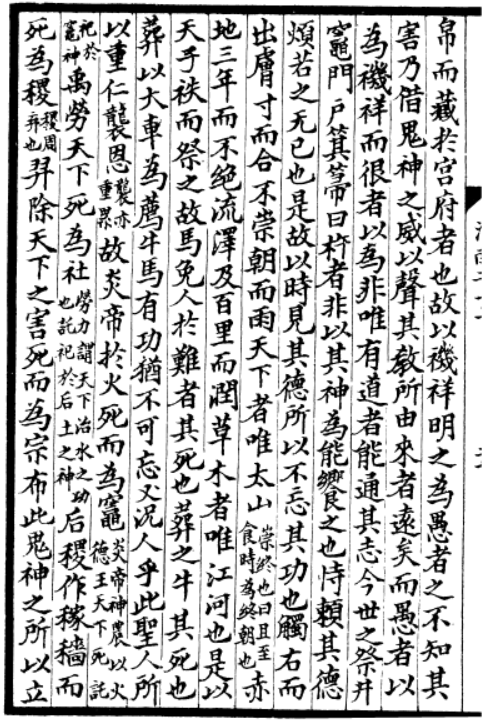 帛而藏於宫府者也故以禨祥明之為愚者之不知其
害乃借鬼神之威以聲其敎所由來者遠矣而愚者以
為禨祥而很者以為非唯有道者能通其志今世之祭井
竈門戶箕箒曰杵者非以其神為能饗之也恃賴其德
煩若之无已也是故以時見其德所以不忘其功也觸右而
出膚寸而合不崇朝而雨天下者唯太山崇終也日旦至食時為終朝也赤
地三年而不絕流澤及百里而潤草木者唯江河也是以
天子袟而祭之故馬免人於難者其死也葬之牛其死也
葬以大車為薦牛馬有功猶不可忘又況人乎此聖人所
以重仁襲恩襲亦重累故炎帝扵火死而為竈炎帝神農以火德王天下死託
祀於竈神禹勞天下死為社勞力謂天下治水之功也託祀於后土之神后稷作稼穡而
死為稷稷周弃也羿除天下之害死而為宗布此鬼神之所以立